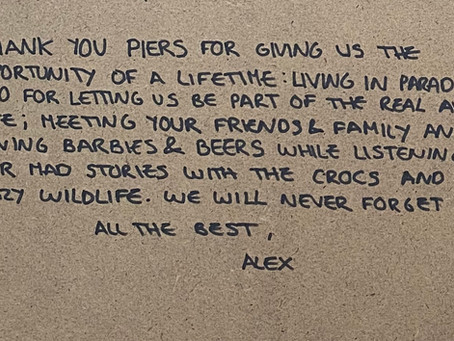 HANK YOU PIERS FOR GIVING US THE
PORTUNITY OF A LIFETIME: LIVING IN PARAD
O FOR LETTING US BE PART OF THE REAL A
E; MEETING YOUR FRIENDS & FAMILY AN
VING BARBIES & BEERS WHILE LISTENING
R MAD STORIES WITH THE CROCS AND
ZY WILDLIFE. WE WILL NEVER FORGET
ALL THE BEST,
ALEX